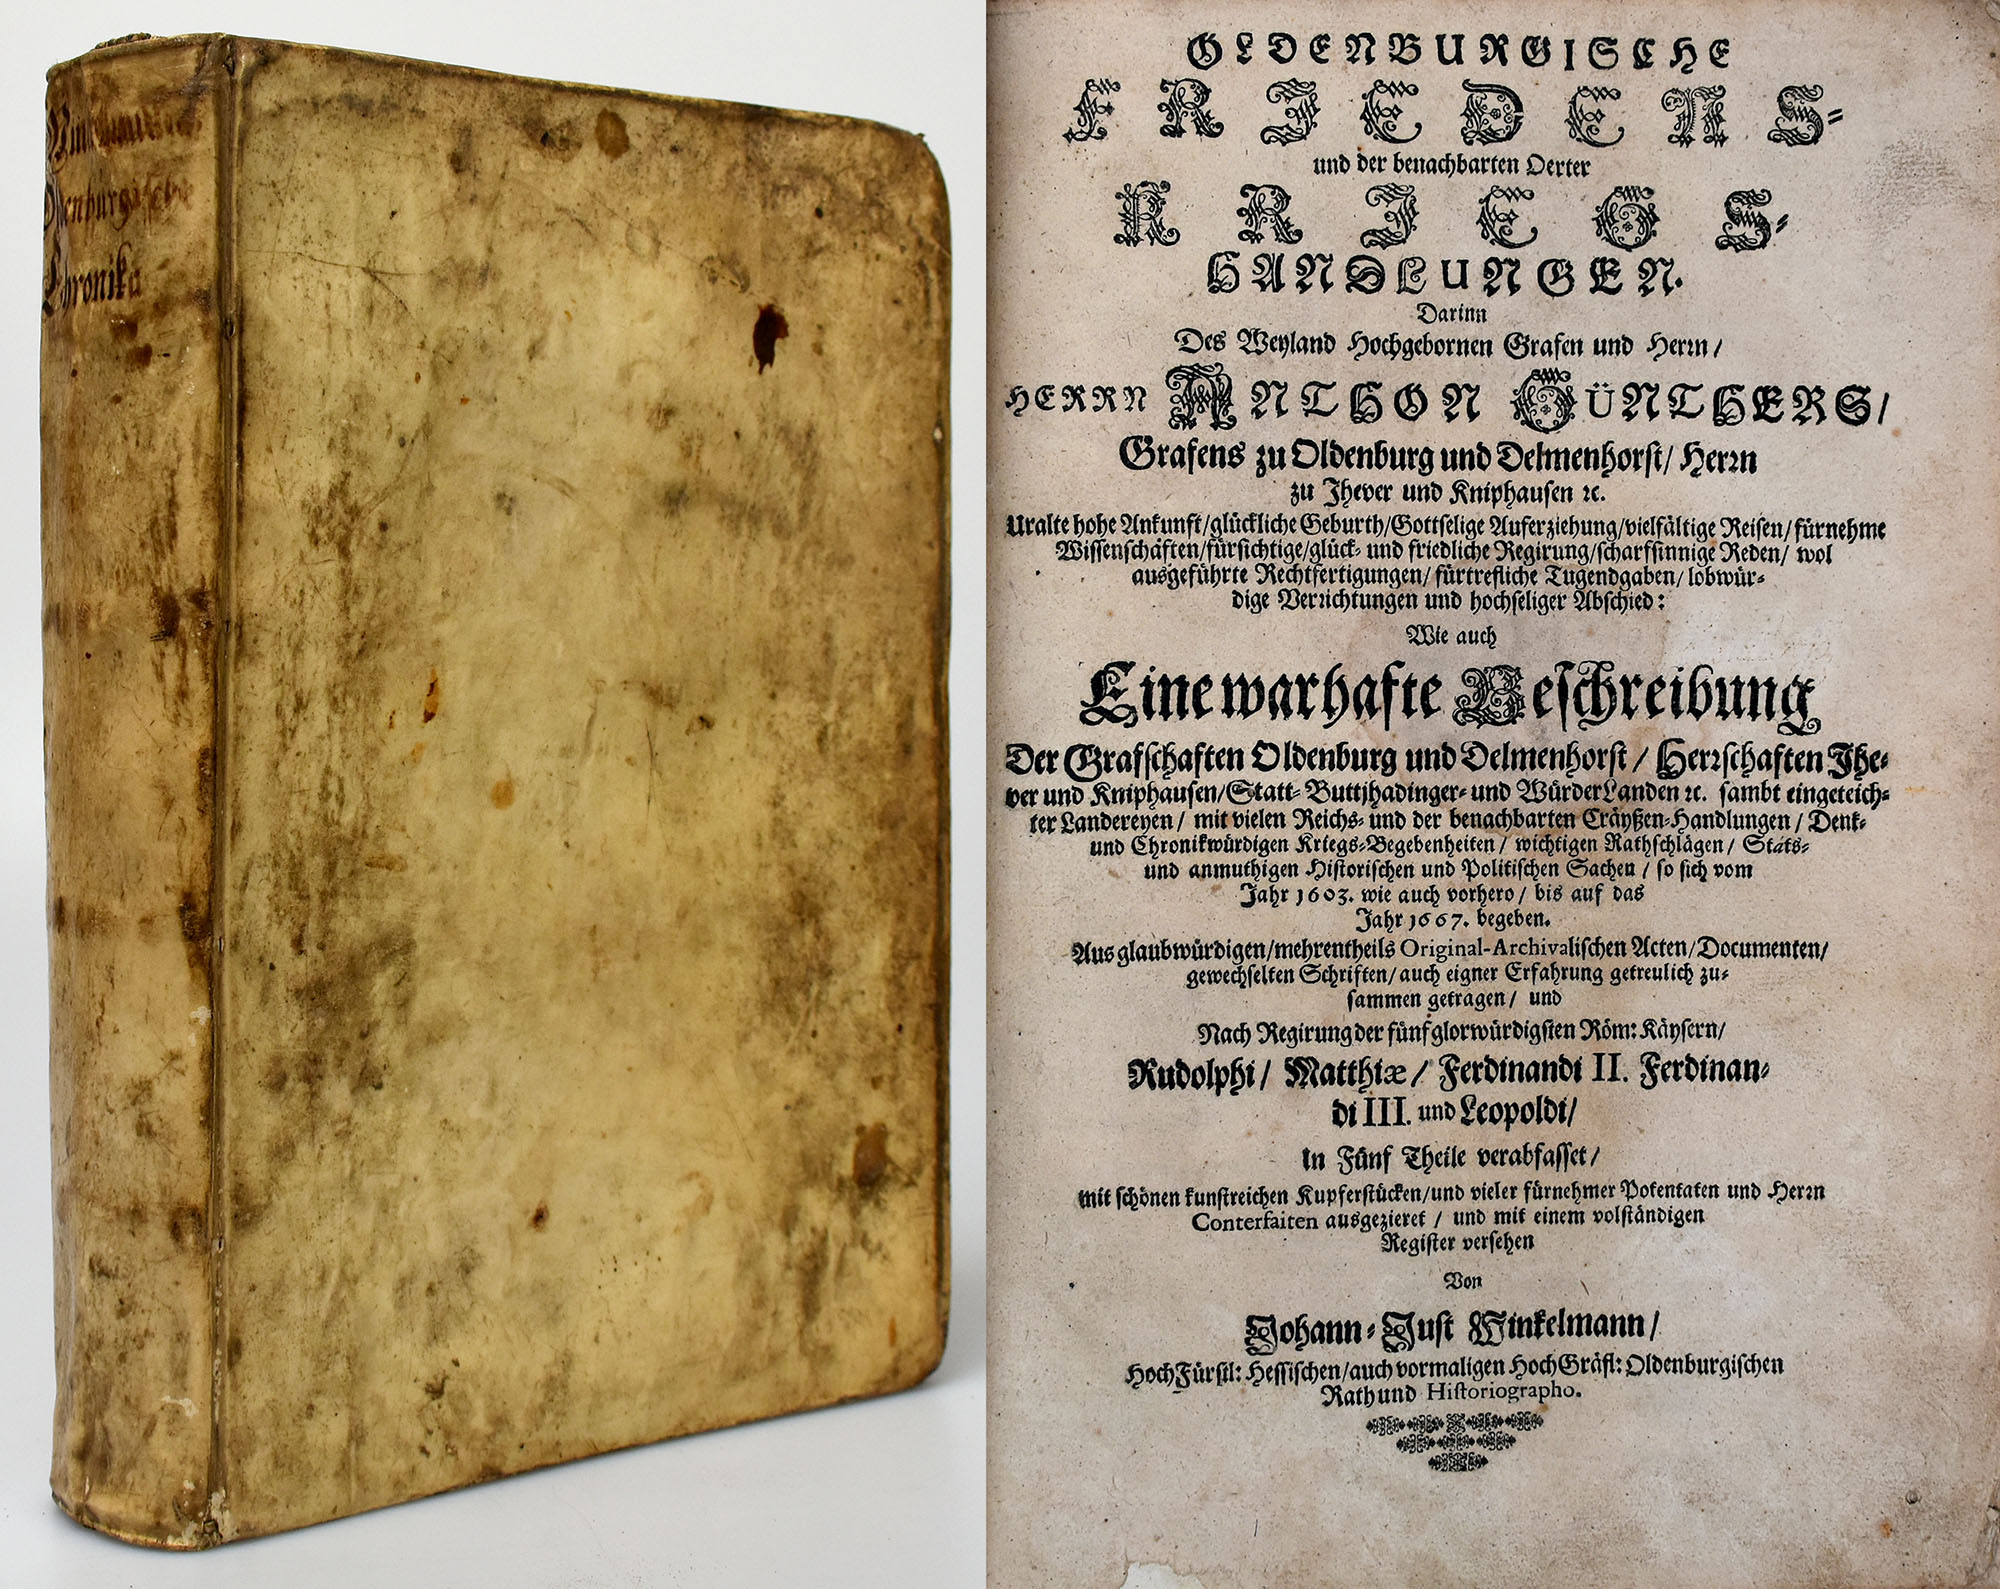 Winkelmanns
Oldenburgische
Chronika
OLDENBURGISCHE
FRIEDENS-
und der benachbarten Oerter
KRIEGS-
HANDLUNGEN.
Darinn
Des Weyland Hochgebornen Grafen und Herrn/
HERRN ANTHON GÜNTHERS/
Grafens zu Oldenburg und Delmenhorst/ Herrn
zu Jhever und Kniphausen ꝛc.
Uralte hohe Ankunft/glückliche Geburth/Gottselige Auferziehung/vielfältige Reisen/fürnehme
Wissenschaften/fürsichtige/glück- und friedliche Regirung/scharfsinnige Reden/ wol
ausgeführte Rechtfertigungen/ fürtrefliche Tugendgaben/ lobwür-
dige Verrichtungen und hochseliger Abschied:
Wie auch
Eine warhafte Beschreibung
Der Grafschaften Oldenburg und Delmenhorst/ Herrschaften Jhe-
ver und Kniphausen/Statt- Buttjhadinger- und WürderLanden ꝛc. sambt eingeteich-
ter Landereyen/ mit vielen Reichs- und der benachbarten Cräyßen-Handlungen/ Denk-
und Chronikwürdigen Kriegs-Begebenheiten/ wichtigen Rathschlägen/ Stats-
und anmuthigen Historischen und Politischen Sachen/ so sich vom
Jahr 1603. wie auch vorhero/ bis auf das
Jahr 1667. begeben.
Aus glaubwürdigen/mehrentheils Original-Archivalischen Acten/Documenten/
gewechselten Schriften/auch eigner Erfahrung getreulich zu-
sammen getragen/ und
Nach Regirung der fünf glorwürdigsten Röm: Käysern/
Rudolphi/ Matthiæ/ Ferdinandi II. Ferdinan-
di III. und Leopoldi/
in Fünf Theile verabfasset/
mit schönen kunstreichen Kupferstücken/und vieler fürnehmer Potentaten und Herrn
Conterfaiten ausgezieret/ und mit einem volständigen
Register versehen
Von
Johann-Just Winkelmann/
HochFürstl: Hessischen/auch vormaligen HochGräfl: Oldenburgischen
Rath und Historiographo.